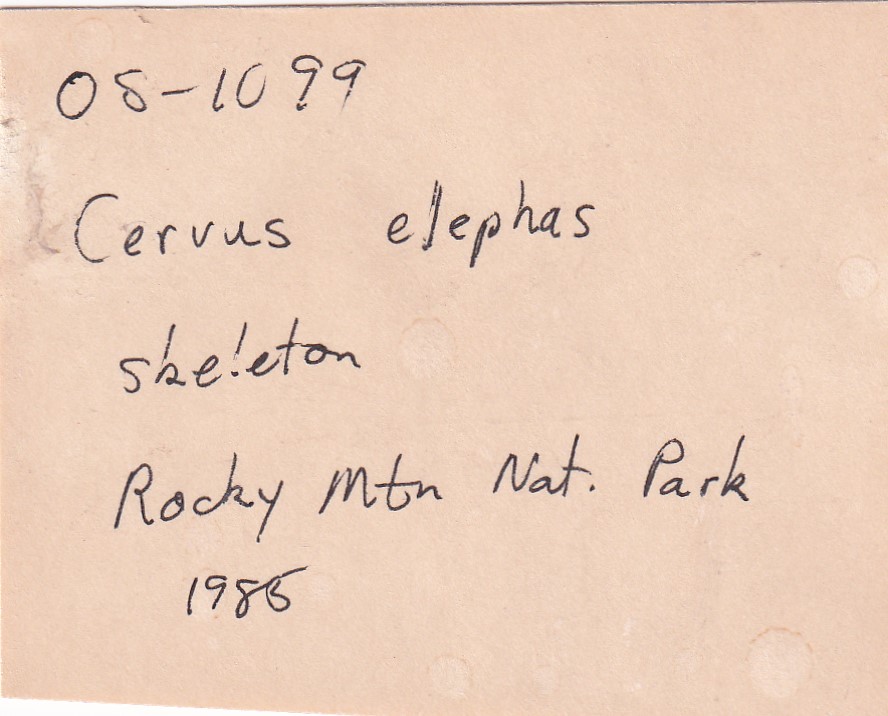 OS-1099
Cervus elephas
skeleton
Rocky Mtn Nat. Park
1985